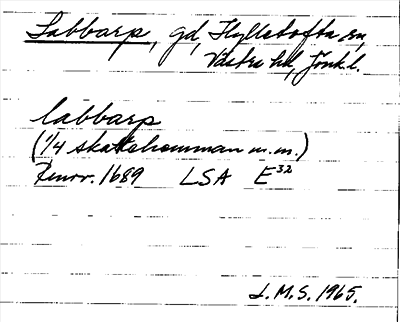 Labbarp, gd, Hylletofta sn,
Västra hd, Jönk.l.
labbarp
(1/4 skattehemman m.m.)
Renov. 1689 LSA E32
I.M.S. 1965.